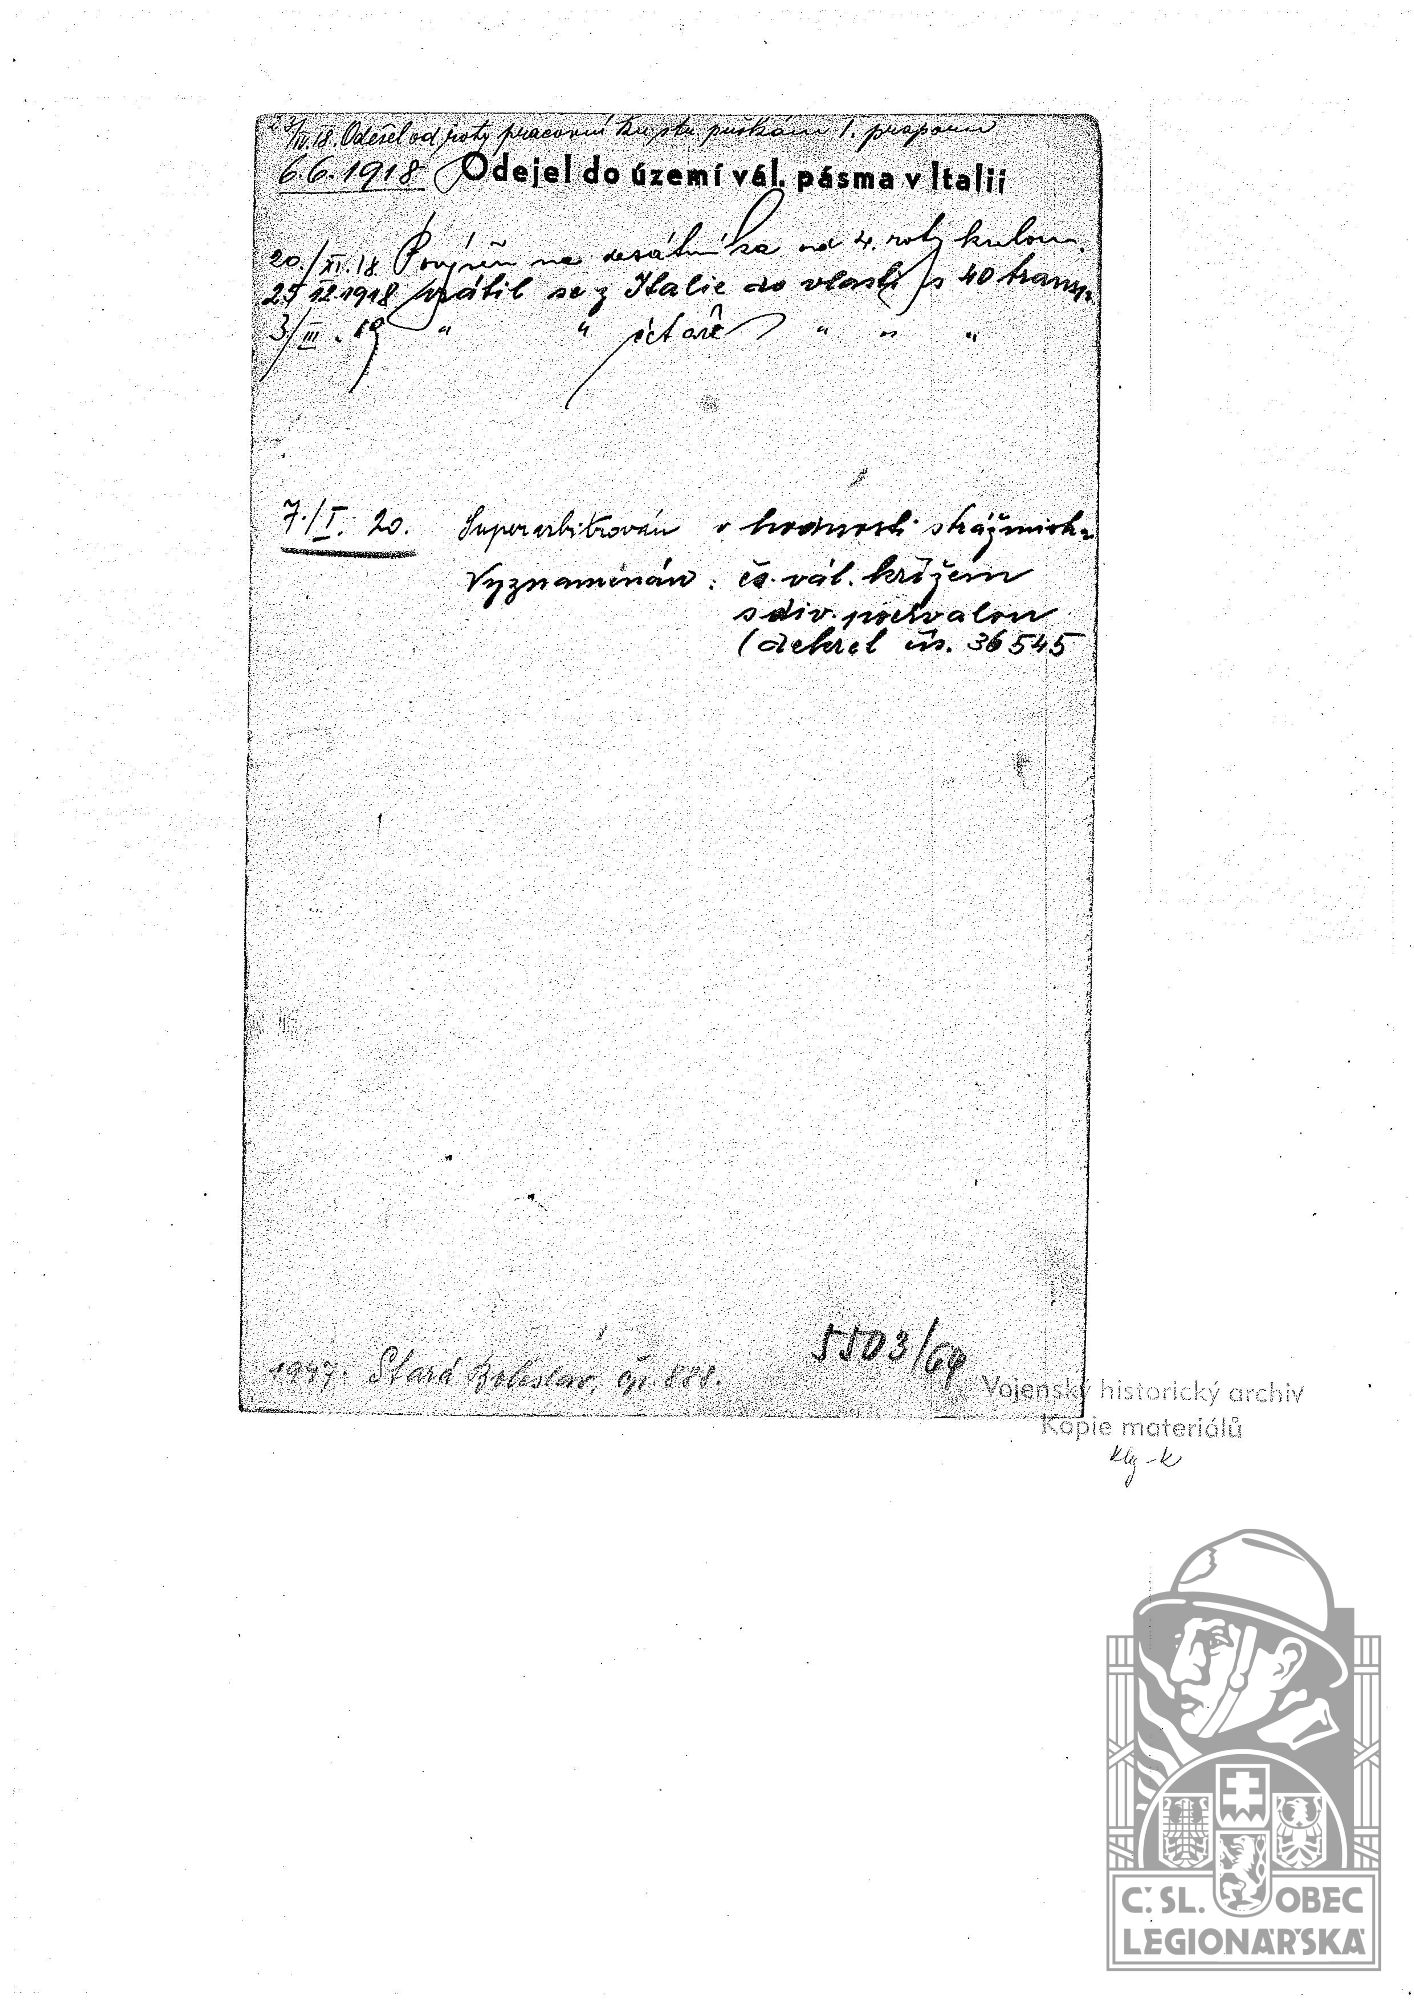 23/III.18. Odešel od roty pracovní ku pluku 1. praporu
6.6.1918 Odejel do území vál. pásma v Italii
20./XI.18 Povýšen na desátníka od 4. roty kulom.
25 12 1918 vrátil se z Italie do vlasti s 40 transp.
3/III. 19 " " " " "
7./I. 20. Superarbitrován v hodnosti strážmistr
Vyznamenán: čs. vál. křížem
s div. pochvalou
(dekret čís. 36545
5503/64
1947. Stará Boleslav, čp. 888.
Vojenský historický archiv
Kopie materiálů
Č. SL. OBEC
LEGIONÁŘSKÁ